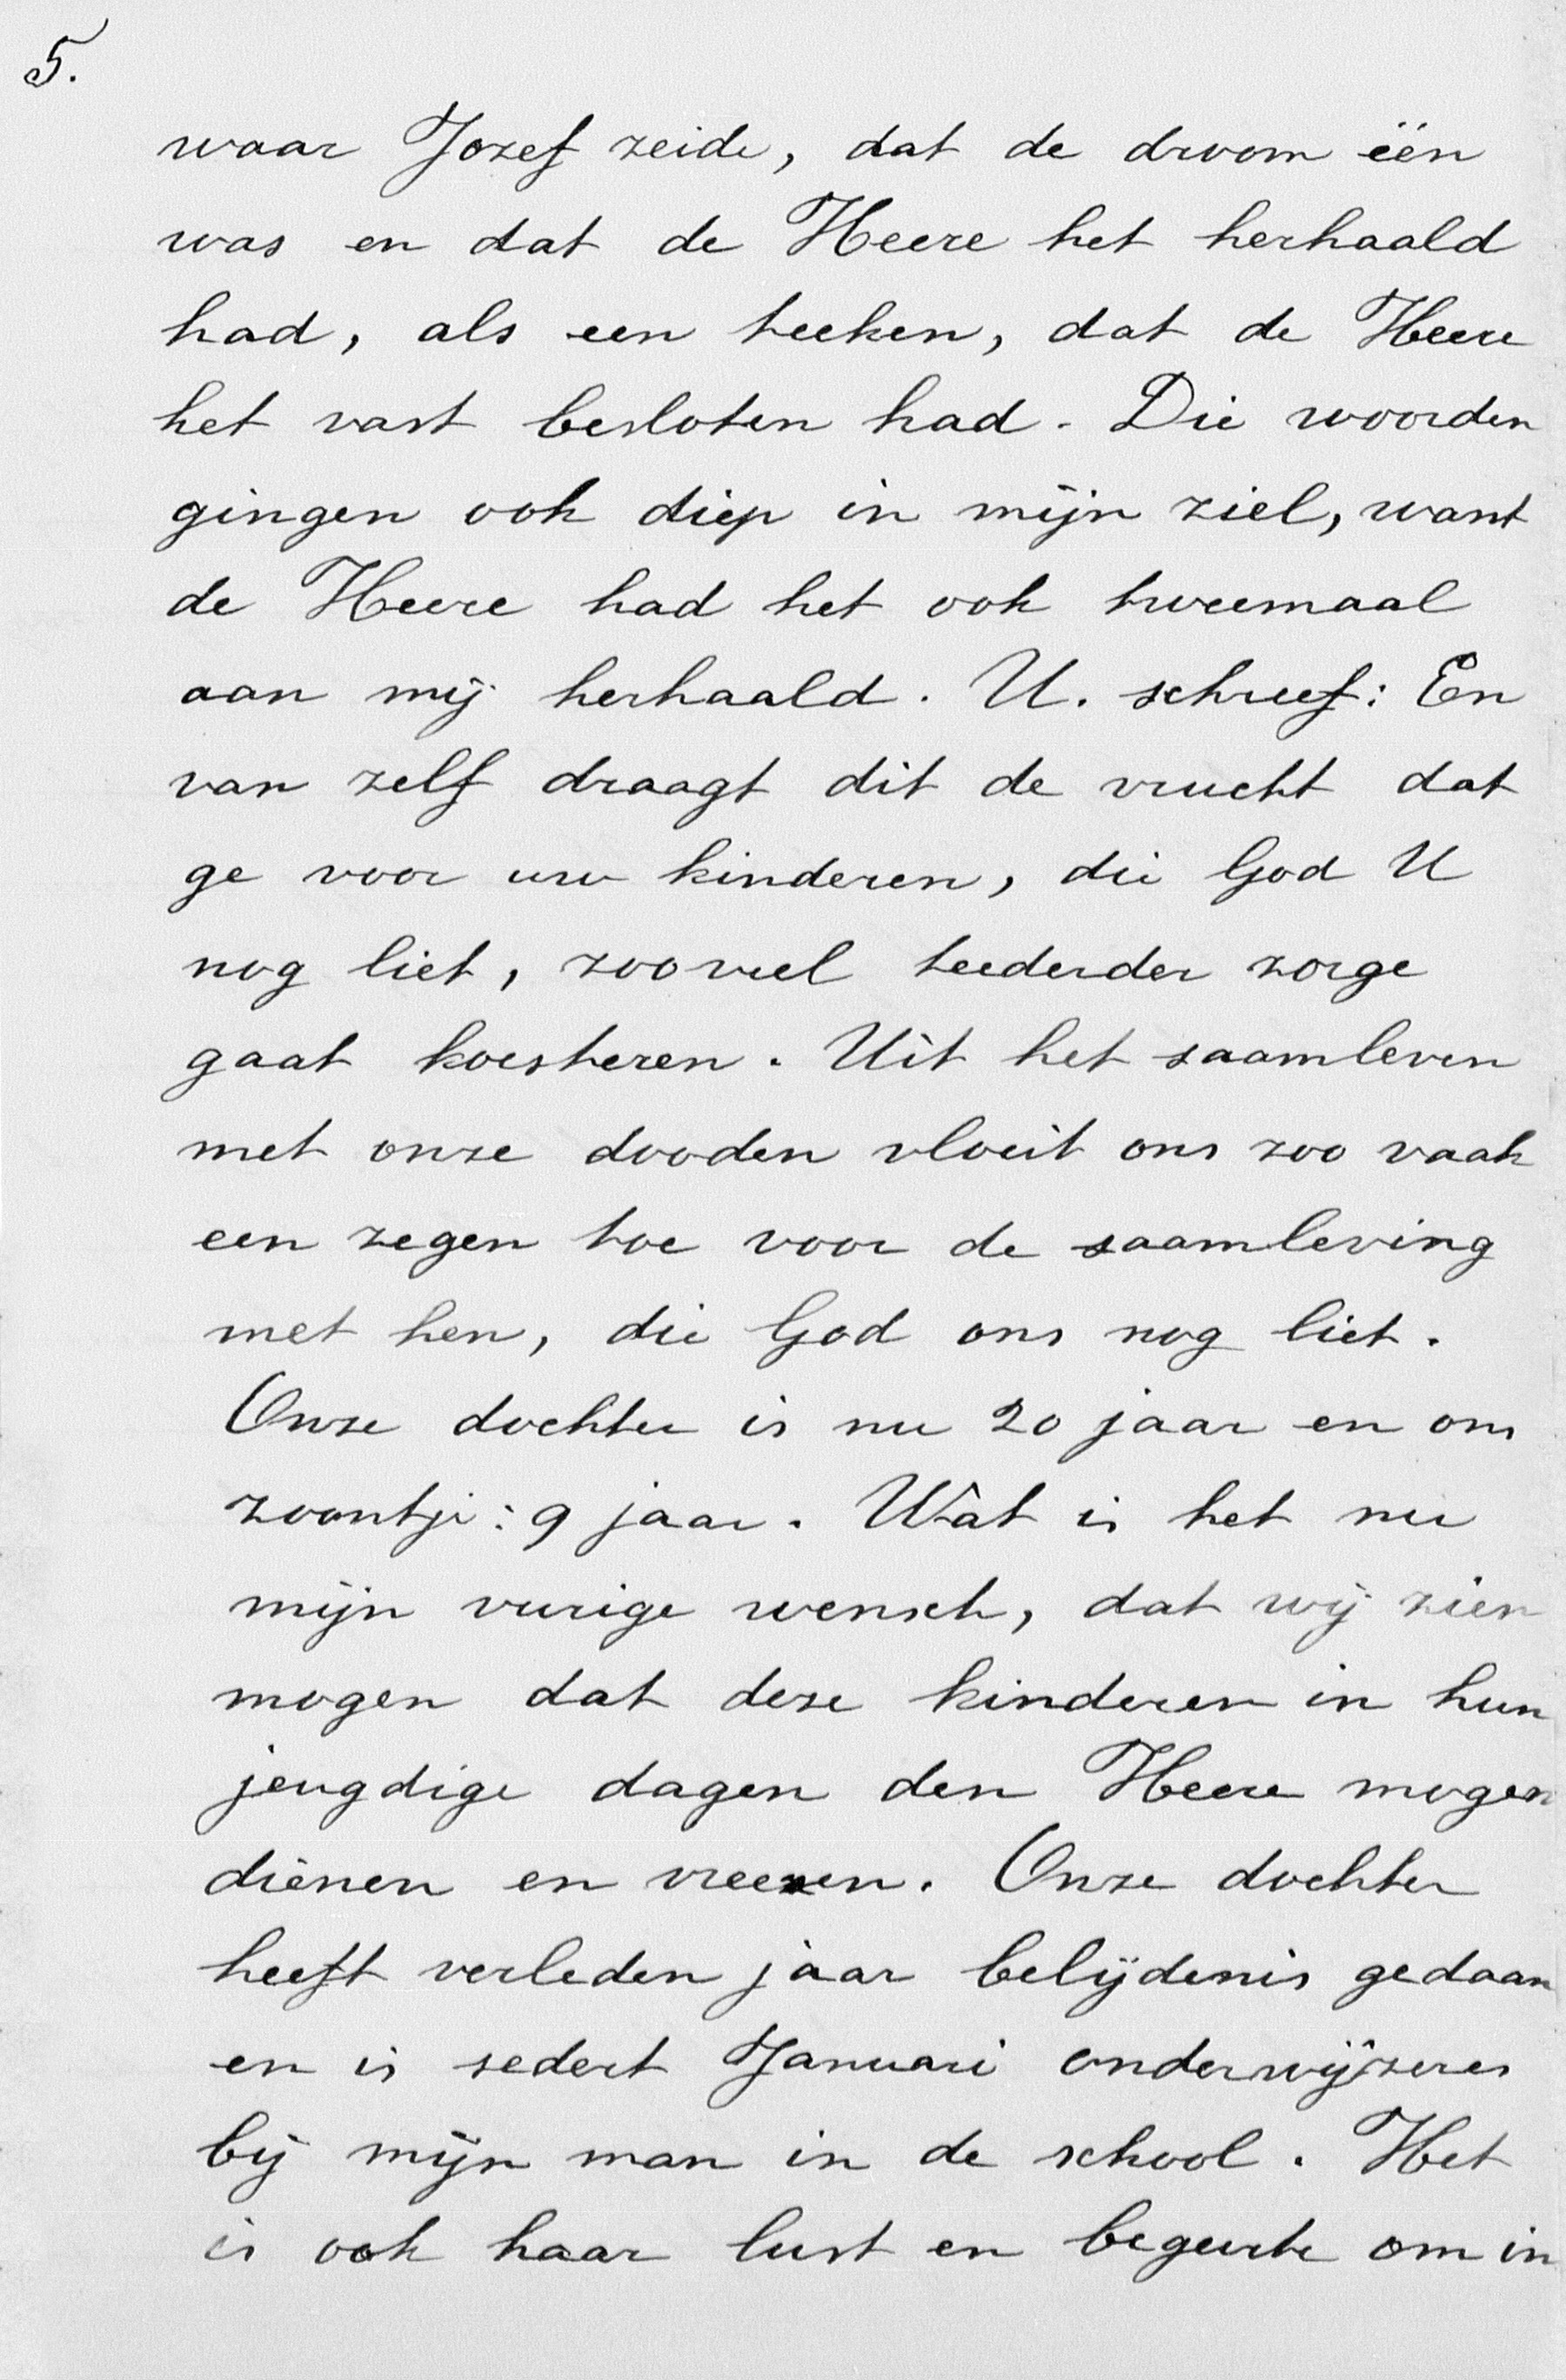 5.
waar Jozef zeide, dat de droom één
was en dat de Heere het herhaald
had, als een teeken, dat de Heere
het vast besloten had. Die woorden
gingen ook diep in mijn ziel, want
de Heere had het ook tweemaal
aan mij herhaald. U. schreef: En
van zelf draagt dit de vrucht dat
ge voor uw kinderen, die God U
nog liet, zooveel teederder zorge
gaat koesteren. Uit het saamleven
met onze dooden vloeit ons zoo vaak
een zegen toe voor de saamleving
met hen, die God ons nog liet.
Onze dochter is nu 20 jaar en ons
zoontje: 9 jaar. Wat is het nu
mijn vurige wensch, dat wij zien
mogen dat deze kinderen in hun
jeugdige dagen den Heere mogen
dienen en vreezen. Onze dochter
heeft verleden jaar belijdenis gedaan
en is sedert Januari onderwijzeres
bij mijn man in de school. Het
is ook haar lust en begeerte om in